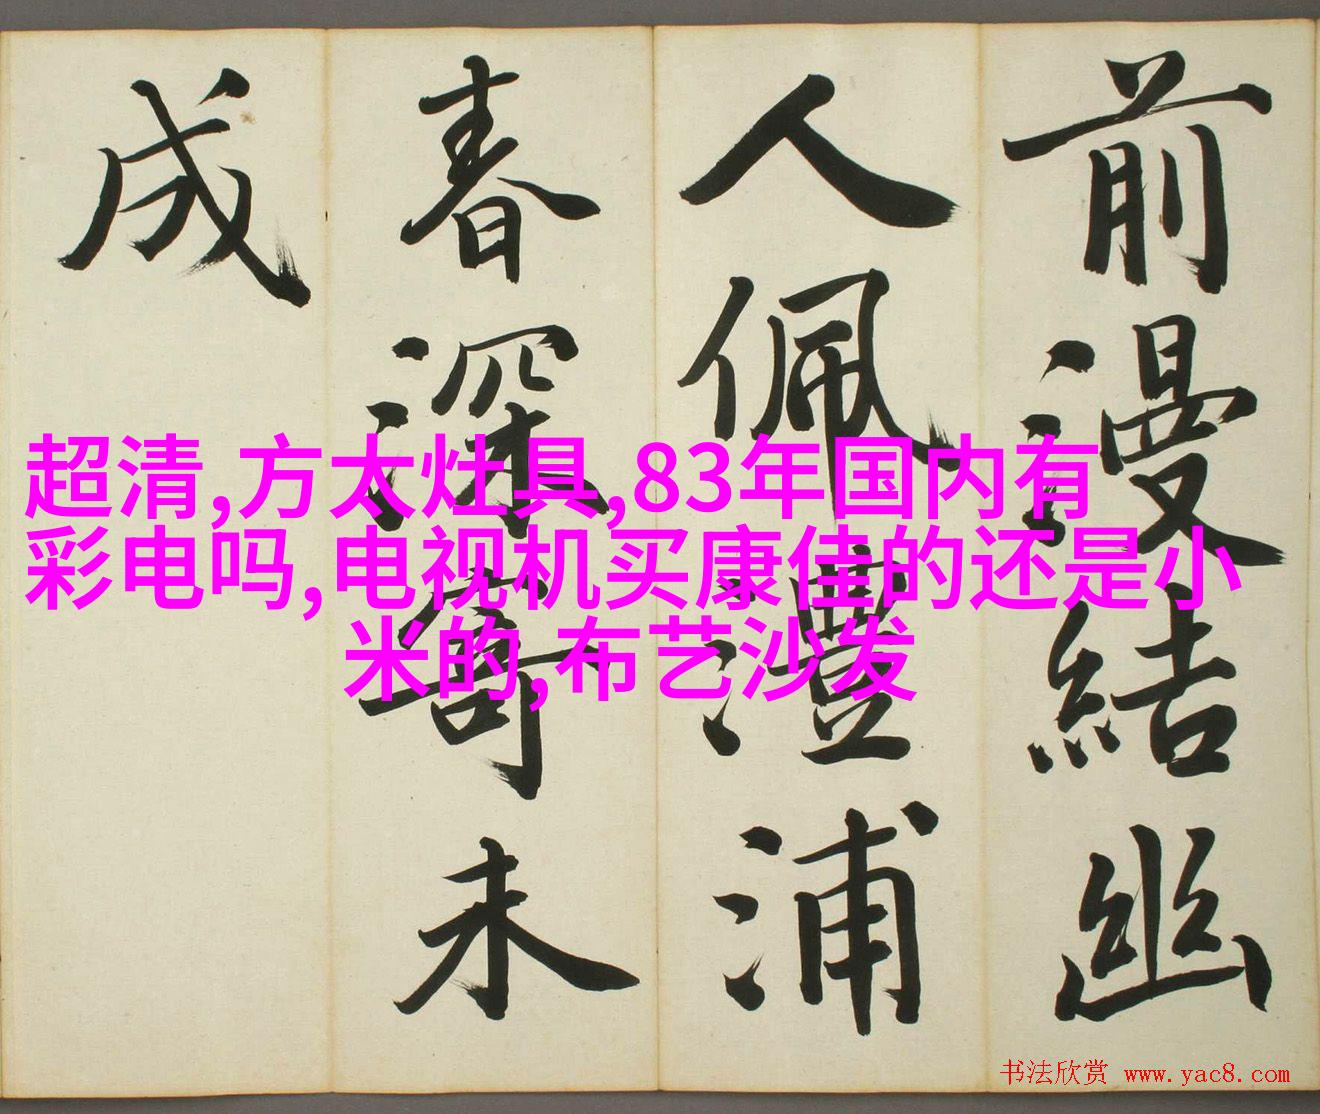 前漫結幽
人佩澧浦
春深寄未
成
超清,方太灶具,83年国内有
彩电吗,电视机买康佳的还是小
米的,布艺沙发
书法欣赏 www.yac8.com